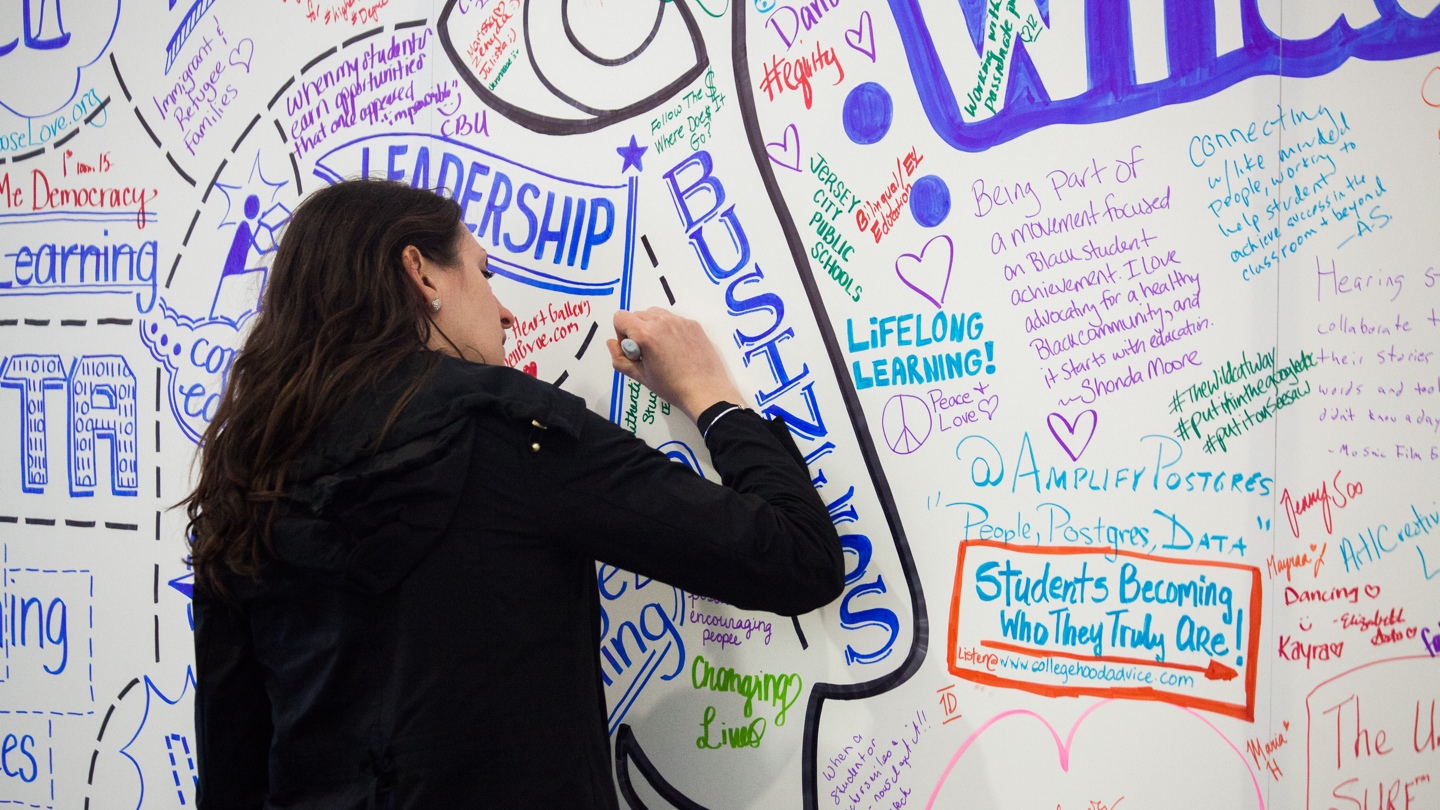 #Degree
Immigrant &
Refugee
Families
ooseLove.org
Me Democracy
Learning
TA
ning
es
when my students
earn opportunities
that once appeared
"impossible"
CBU
LEADERSHIP
Heart Gallery
con
ed
Follow The $
Where Does it
Go?
BUSINESS
encouraging
people
Changing
Lives
#equity
Working with
passionate
JERSEY
CITY
PUBLIC
SCHOOLS
Bilingual/EL
Education
LIFELONG
LEARNING!
Peace +
Love
Being part of
a movement focused
on Black student
achievement. I love
advocating for a healthy
Black community, and
it starts with education.
~Shonda Moore
Connecting
w/like minded
people, working to
help student
achieve success in the
classroom + beyond
—A.S.
Hearing st
collaborate t
their stories
words and tool
didn't know a day
- Mosaic Film
#Thewildcatway
#putitinthegoogledoc
#putitonseesaw
@AMPLIFYPOSTGRES
"People, Postgres, DATA"
Students Becoming
Who They Truly Are!
Listen@www.collegehoodadvice.com
Jenny Soo
Mayraa
Art/Creativi
Dancing
-Elizabeth
Kayra
1D
Maria
H
when a
student or
smiles &
The U
SURF™